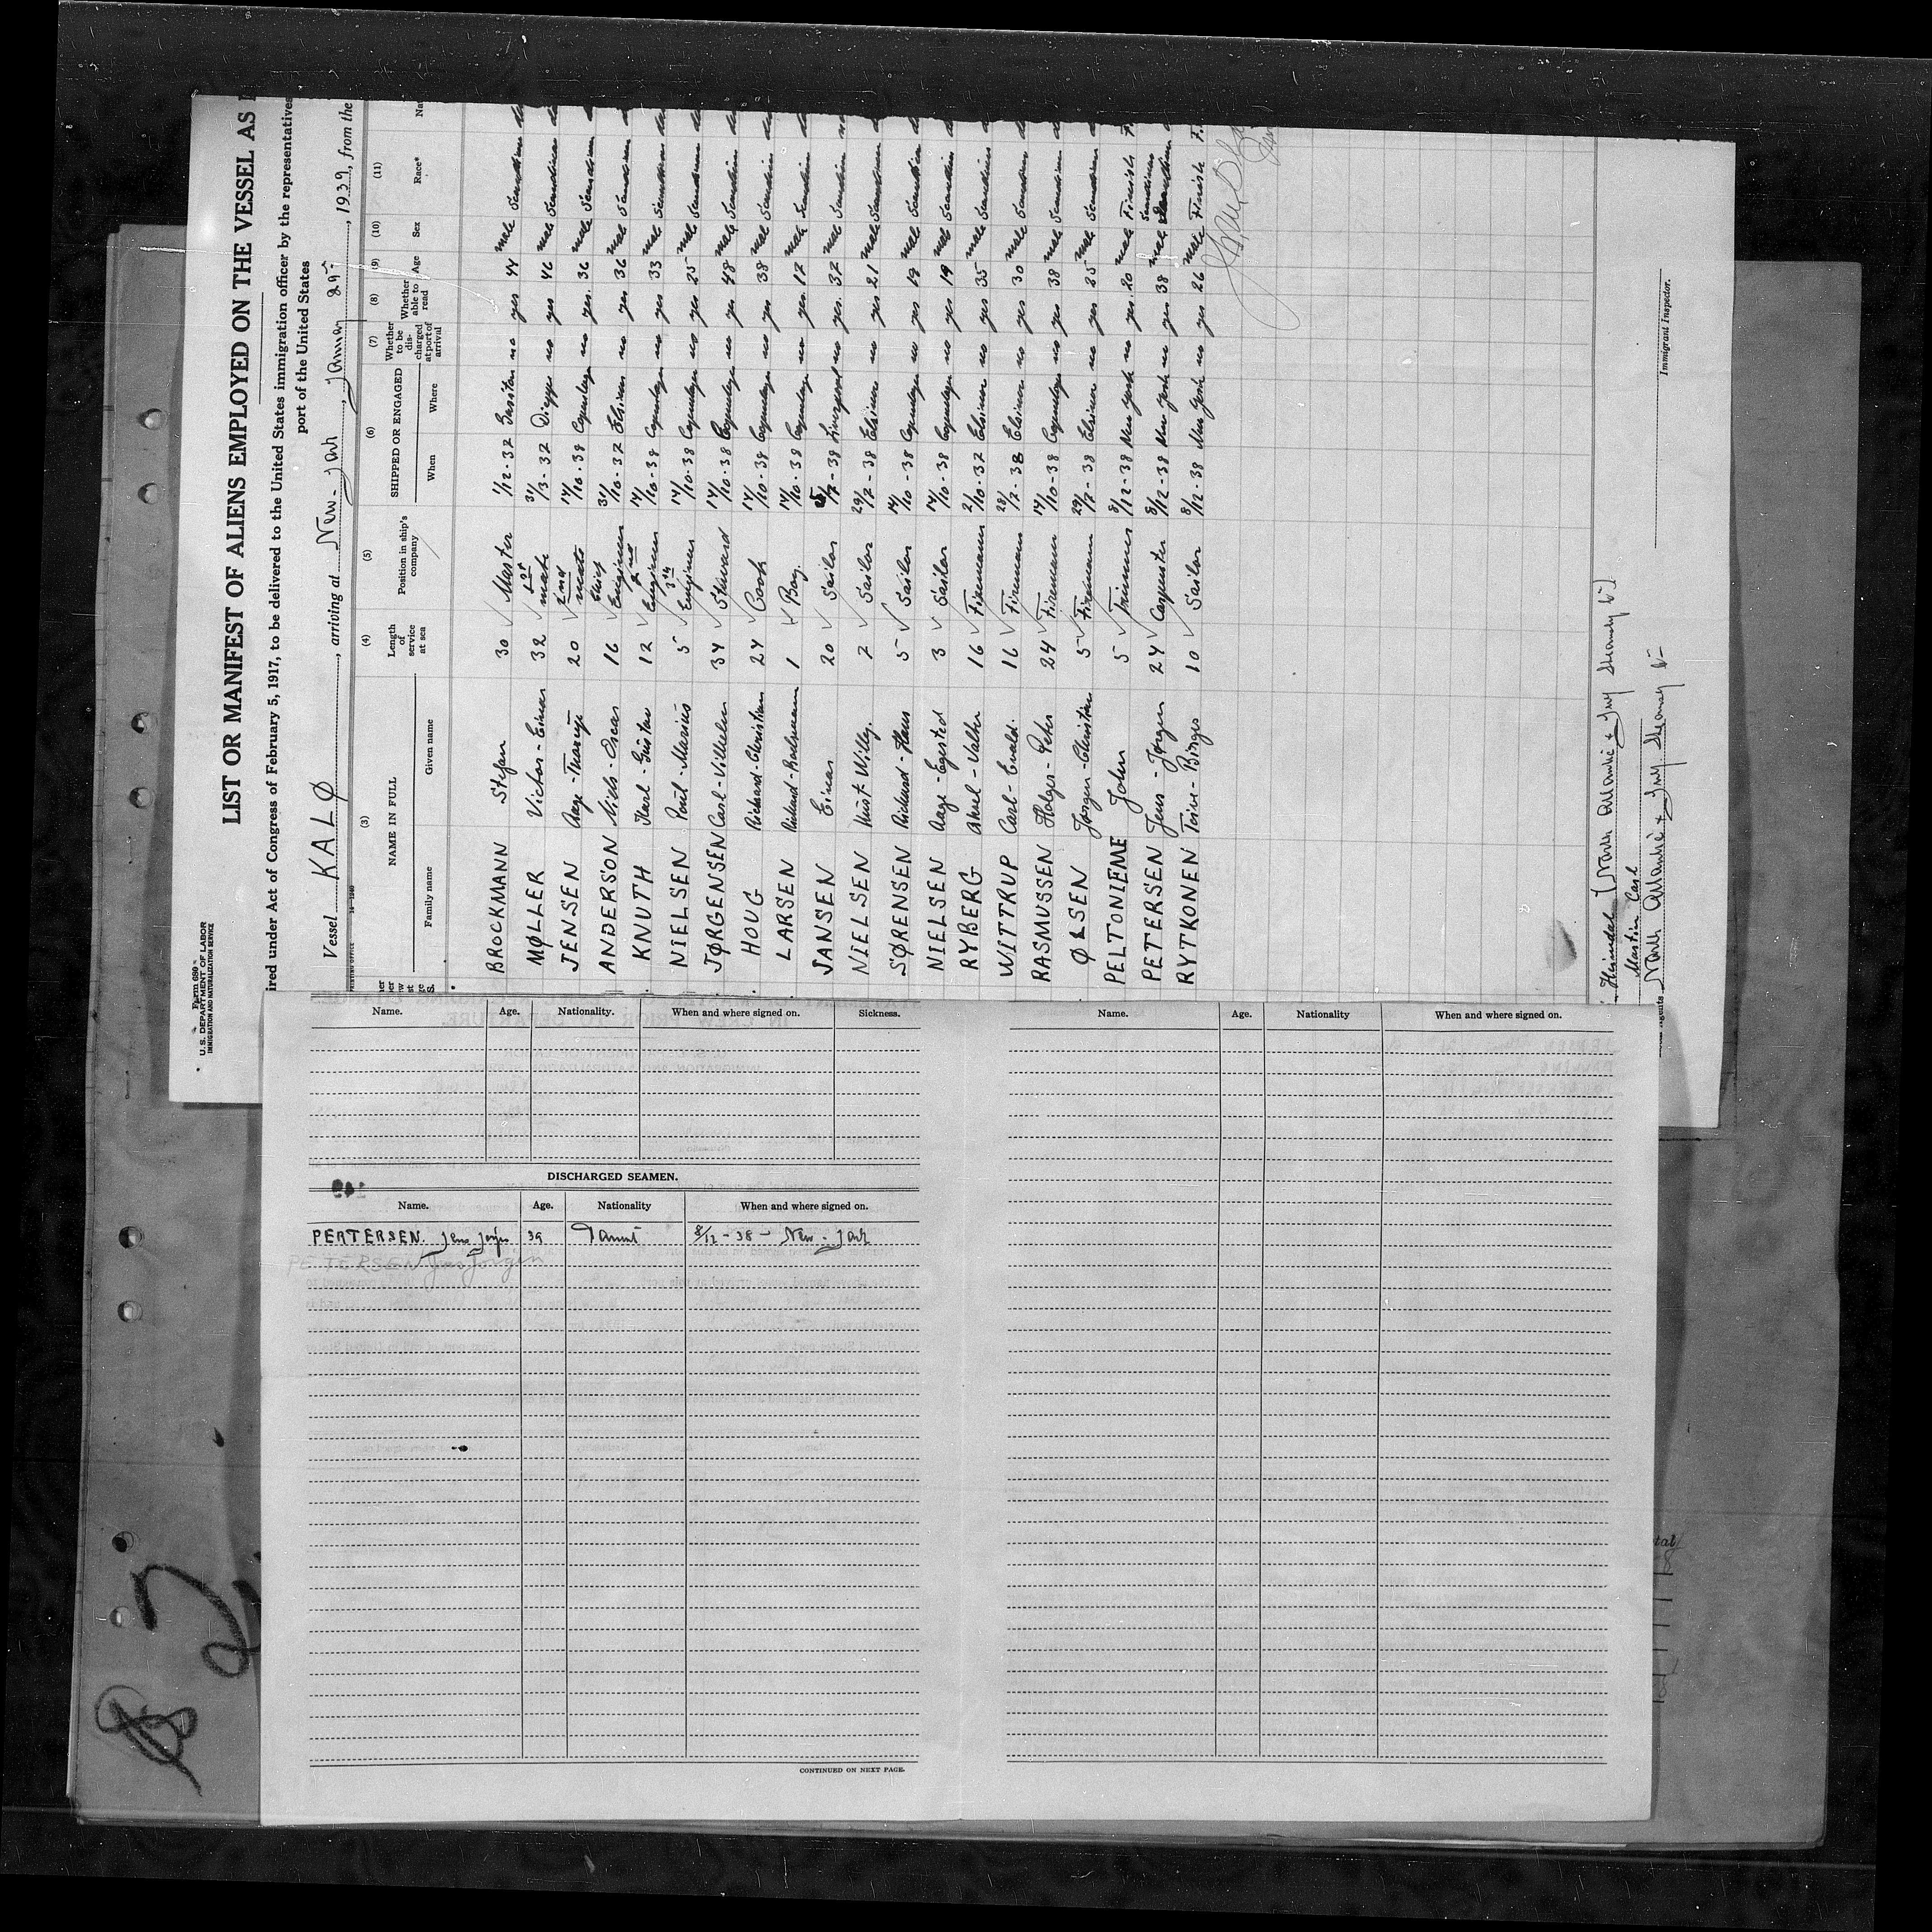 Form 680
U. S. DEPARTMENT OF LABOR
IMMIGRATION AND NATURALIZATION SERVICE
LIST OR MANIFEST OF ALIENS EMPLOYED ON THE VESSEL AS
ired under Act of Congress of February 5, 1917, to be delivered to the United States immigration officer by the representatives
port of the United States
Vessel KALØ, arriving at New-York, 1939, from the
(3) (4) (5) (6) (7) (8) (9) (10) (11)
NAME IN FULL Length of service at sea Position in ship's company SHIPPED OR ENGAGED Whether to be discharged at port of arrival Whether able to read Age Sex Race*
Family name Given name When Where
BROCKMANN Stefan 30 Master 1/12-37 no yes 44 male Scandin
MØLLER Victor-Einar 32 1st mate 31/3-37 Dieppe no yes 46 male Scandin
JENSEN Aage 20 2nd mate 14/10-38 Copenhagen no yes 36 male Scandin
ANDERSON Niels-Oscar 16 Chief Engineer 31/10-37 Elsinor no yes 36 male Scandin
KNUTH Karl-Gustav 12 2nd Engineer 14/10-38 Copenhagen no yes 33 male Scandin
NIELSEN Poul-Marius 5 3th Engineer 14/10-38 Copenhagen no yes 25 male Scandin
JØRGENSEN Carl-Vilhelm 34 Steward 14/10-38 Copenhagen no yes 48 male Scandin
HOUG Richard-Christian 24 Cook 14/10-38 Copenhagen no yes 38 male Scandin
LARSEN 1 Boy. 14/10-38 Copenhagen no yes 17 male Scandin
JANSEN Einar 20 Sailor Liverpool no yes 37 male Scandin
NIELSEN Willy. 7 Sailor 29/7-38 Elsinor no yes 21 male Scandin
SØRENSEN Richard-Hans 5 Sailor 14/10-38 Copenhagen no yes 19 male Scandin
NIELSEN Aage-Egested 3 Sailor 14/10-38 Copenhagen no yes 19 male Scandin
RYBERG Aksel-Valter 16 Firemann 2/10-37 Elsinor no yes 35 male Scandin
WITTRUP Carl-Evald. 16 Firemann 28/7-38 Elsinor no yes 30 male Scandin
RASMUSSEN Holger-Peter 24 Firemann 14/10-38 Copenhagen no yes 38 male Scandin
ØLSEN Jørgen-Christian 5 Firemann 29/7-38 Elsinor no yes 25 male Scandin
PELTONIEME John 5 Trimmer 8/12-38 New York no yes 20 male Finish
PETERSEN Jens-Jørgen 24 Carpenter 8/12-38 New York no yes 38 male Scandinav
RYTKONEN Toivo-Birger 10 Sailor 8/12-38 New York no yes 26 male Finish
Immigrant Inspector.
Name. Age. Nationality. When and where signed on. Sickness.
DISCHARGED SEAMEN.
Name. Age. Nationality When and where signed on.
PERTERSEN. Jens Jørgen 39 8/12-38- New-York
PETERSEN Jens Jorgen
CONTINUED ON NEXT PAGE.
Name. Age. Nationality When and where signed on.